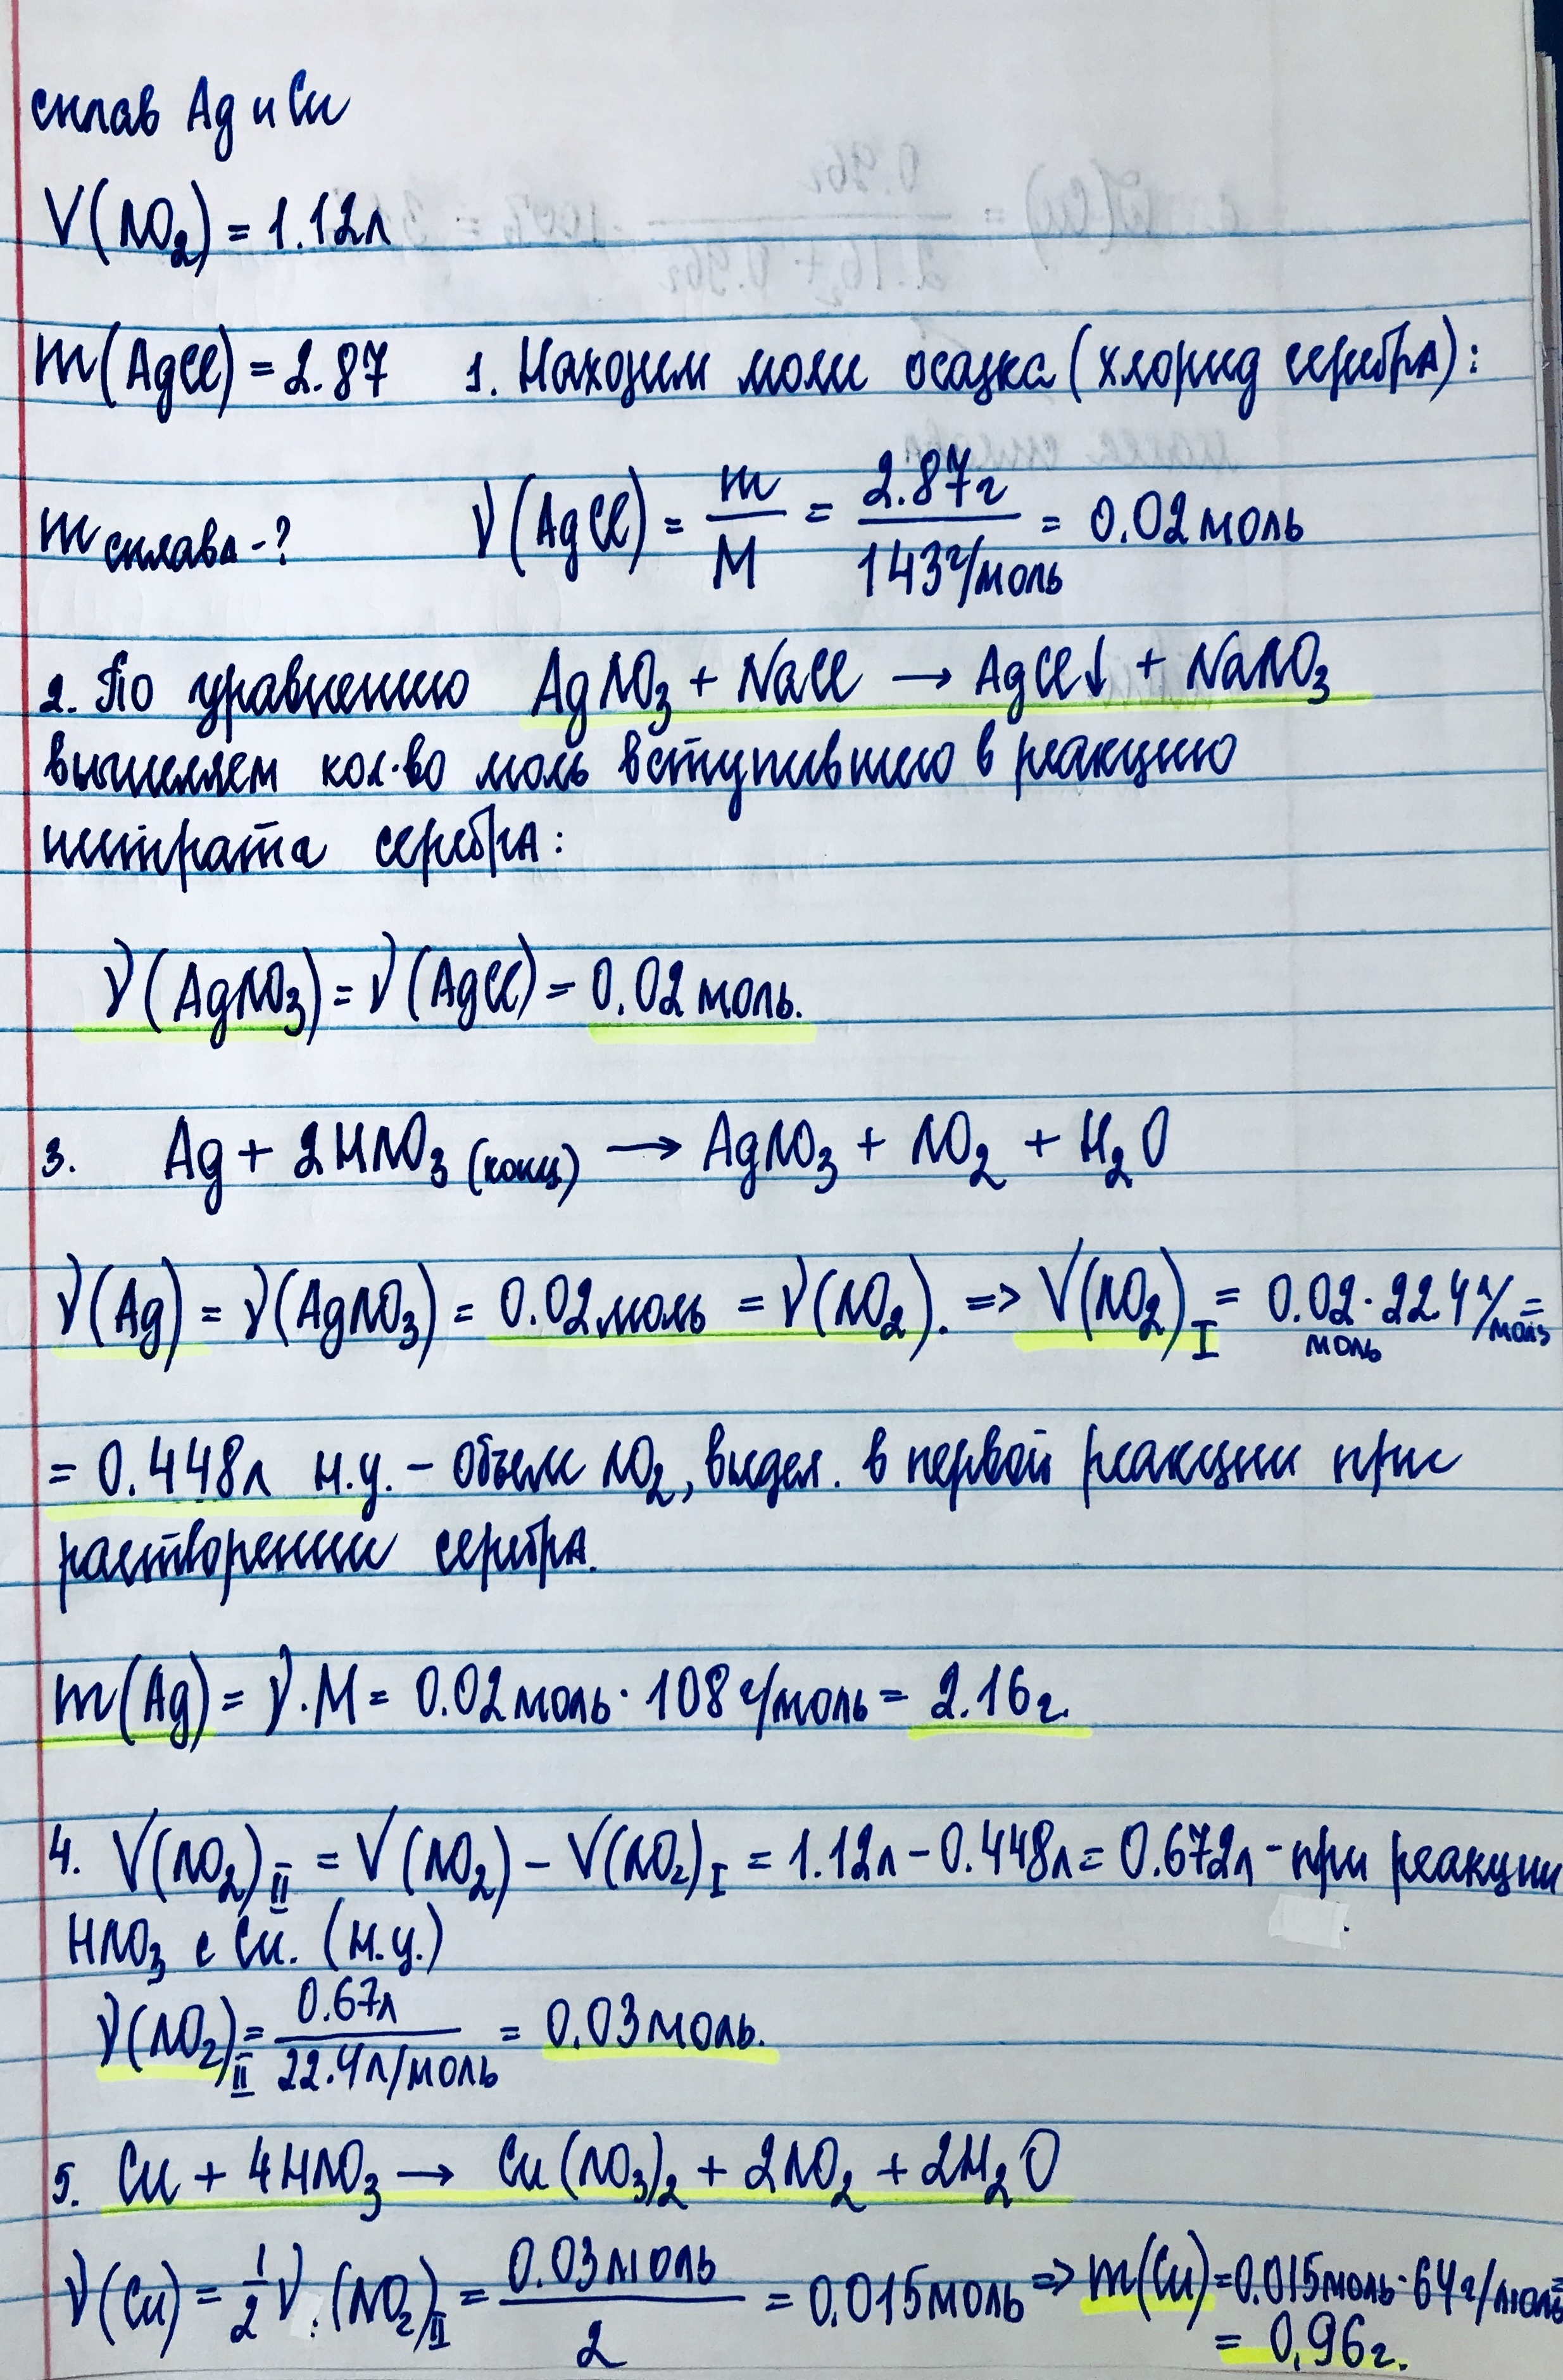 сплав Ag и Cu
V(NO₂) = 1.12л
m(AgCl) = 2.87 1. Находим моли осадка (хлорид серебра):
m сплава - ? ν(AgCl) = m/M = 2.87г/143г/моль = 0.02 моль
2. По уравнению AgNO₃ + NaCl → AgCl↓ + NaNO₃
вычисляем кол-во моль вступившего в реакцию
нитрата серебра:
ν(AgNO₃) = ν(AgCl) = 0.02 моль.
3. Ag + 2HNO₃ (конц) → AgNO₃ + NO₂ + H₂O
ν(Ag) = ν(AgNO₃) = 0.02 моль = ν(NO₂). => V(NO₂) I = 0.02 моль · 22.4 л/моль =
= 0.448л н.у. - объем NO₂, выдел. в первой реакции при
растворении серебра.
m(Ag) = ν · M = 0.02 моль · 108 г/моль = 2.16 г.
4. V(NO₂) II = V(NO₂) - V(NO₂) I = 1.12л - 0.448л = 0.672л - при реакции
HNO₃ с Cu. (н.у.)
ν(NO₂) II = 0.67л/22.4л/моль = 0.03 моль.
5. Cu + 4HNO₃ → Cu(NO₃)₂ + 2NO₂ + 2H₂O
ν(Cu) = 1/2 ν(NO₂) II = 0.03 моль/2 = 0.015 моль => m(Cu) = 0.015 моль · 64 г/моль =
= 0,96 г.